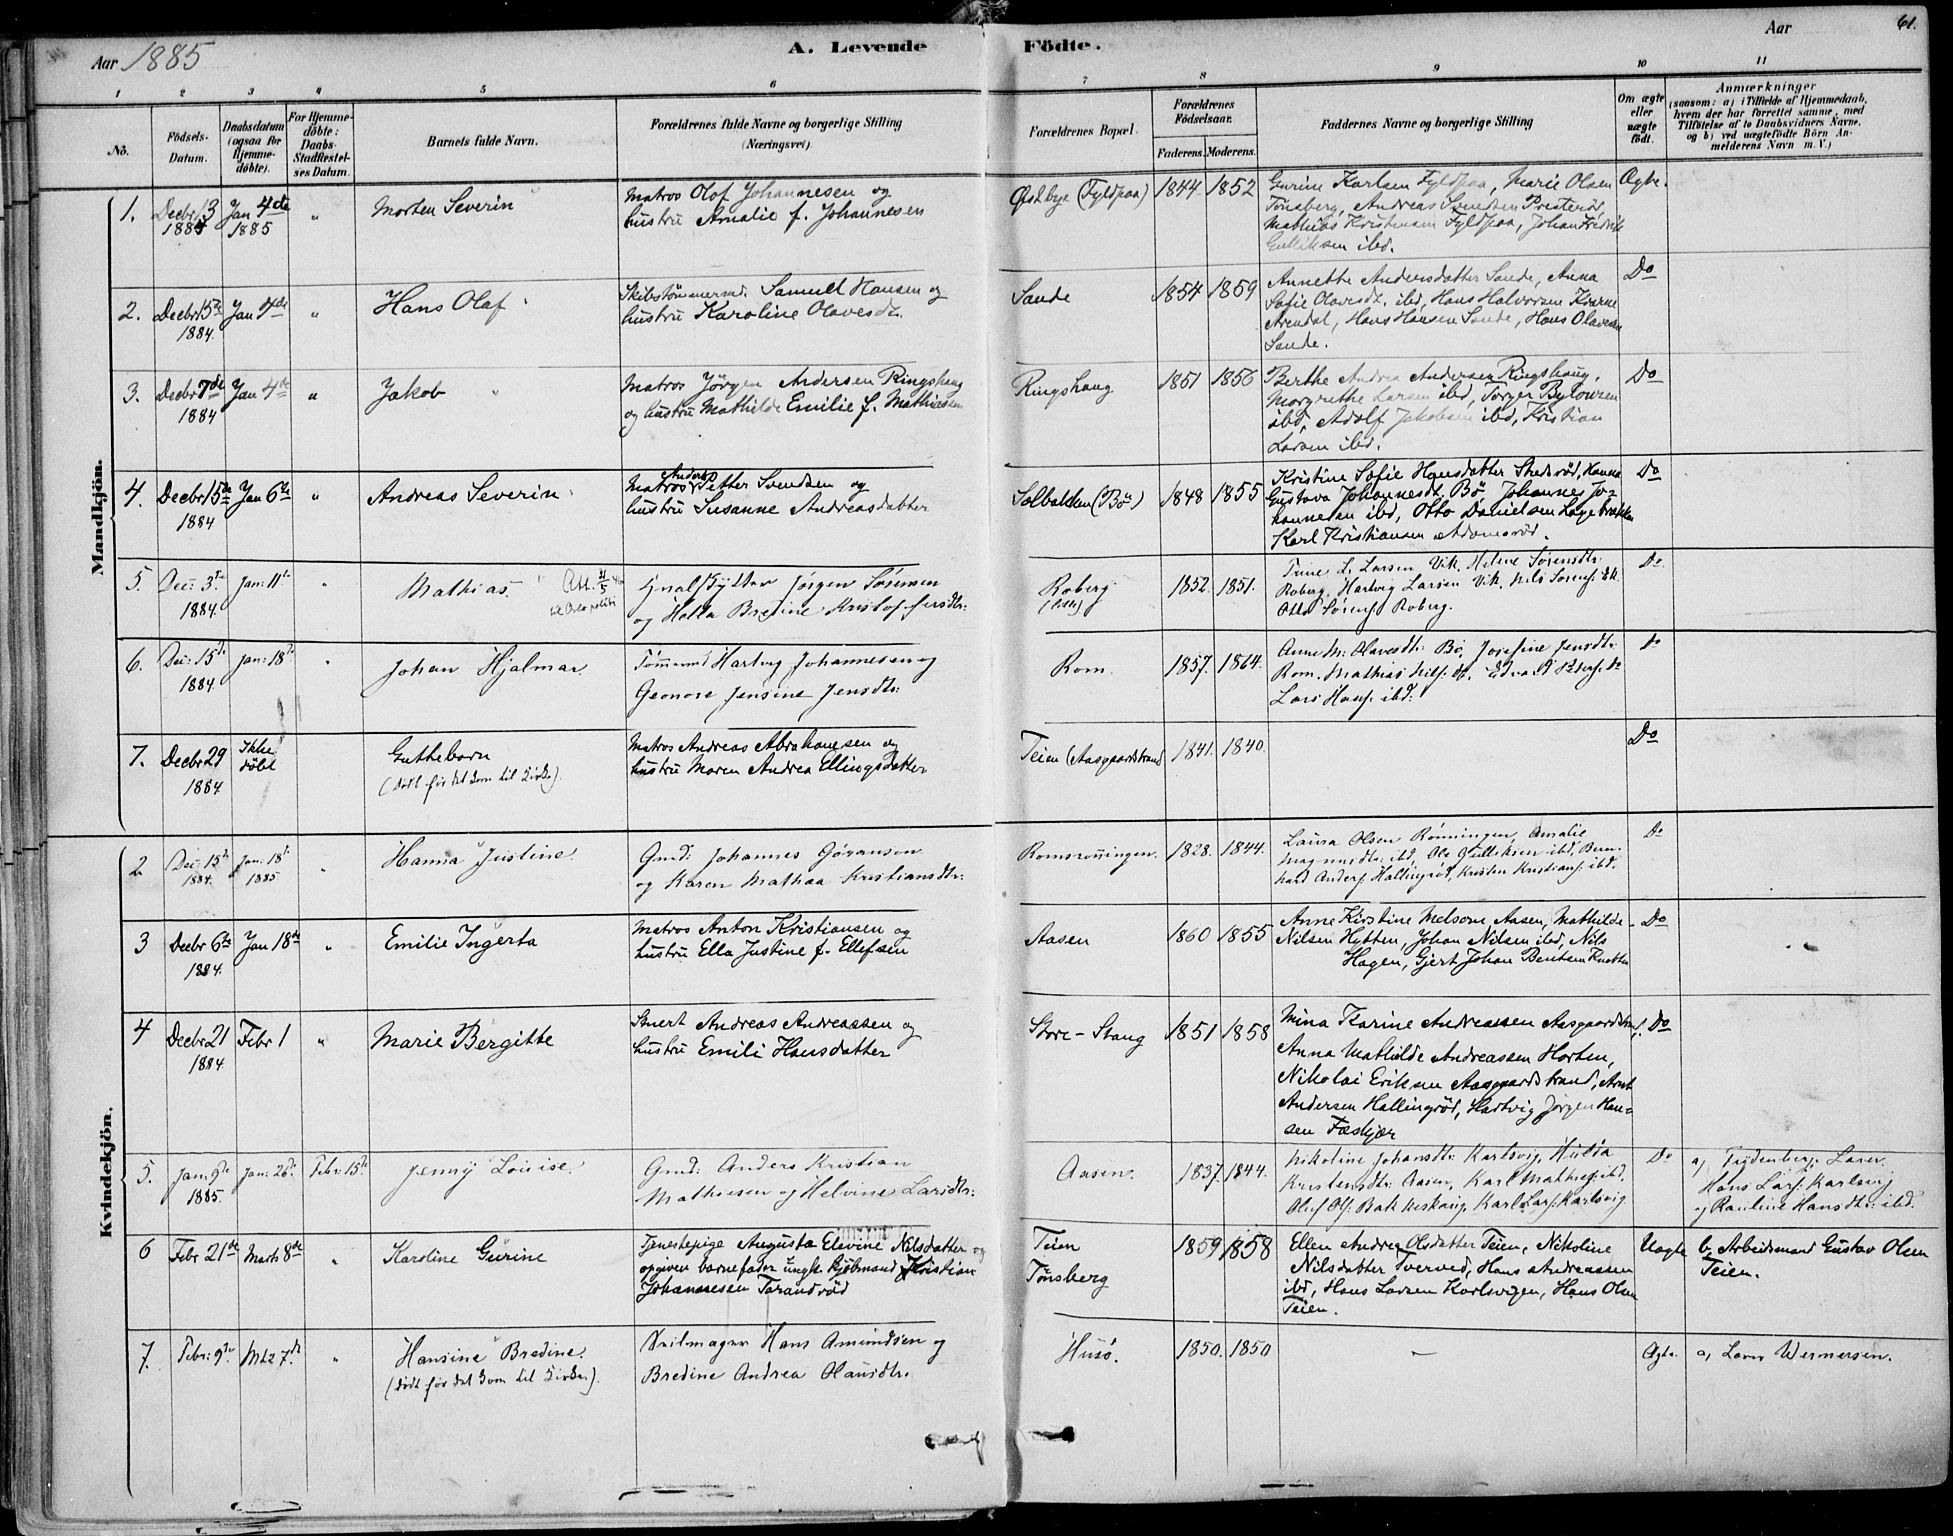 Aar 1885
A. Levende Födte.
Aar
61.
1 2 3 4 5 6 7 8 9 10 11
No.
Födsels-Datum.
Daabsdatum (ogsaa for Hjemme-döbte).
For Hjemme-döbte: Daabs-Stadfæstel-ses Datum.
Barnets fulde Navn.
Forældrenes fulde Navne og borgerlige Stilling (Næringsvei).
Forældrenes Bopæl.
Forældrenes Födselsaar.
Faderens. Moderens.
Faddernes Navne og borgerlige Stilling
Om ægte eller uægte födt.
Anmærkninger
(saasom: a) i Tilfælde af Hjemmedaab,
hvem der har forrettet samme, med
Tilföielse af to Daabsvidners Navne,
og b) ved uægtefödte Börn An-
melderens Navn m. V.)
Mandkjön.
1. Decbr 13 1884 Jan 4de 1885 " Morten Severin
Matros Olof Johannesen og
hustru Amalie f. Johannesen
Østbye (Fyldpaa) 1844 1852
Gurine Karlsen Fyldpaa, Marie Olsen
Tönsberg, Andreas Svendsen Presterød,
Mathias Kristensen Fyldpaa, Johan Fredrik
Gulliksen ibd.
Ægte.
2. Decbr 5te 1884. Jan 4de " Hans Olaf
Skibstømmermd. Samuel Hansen og
hustru Karoline Olavesdt.
Sande 1854 1859
Annette Andersdatter Sande, Anna
Sofie Olavesdt. ibd, Hans Halvorsen
Arendal, Hans Hansen Sande, Hans Olavesen
Sande.
Do
3. Decbr 7de 1884 Jan 4de " Jakob
Matros Jörgen Andersen Ringshaug
og hustru Mathilde Emilie f. Mathiesen
Ringshaug 1851 1856
Berthe Andrea Andersen Ringshaug,
Margrethe Larsen ibd, Torger
ibd, Adolf Jakobsen ibd, Kristian
Larsen ibd.
Do
4. Decbr 15de 1884 Jan 6te " Andreas Severin
Matros Anders Petter Svendsen og
hustru Susanne Andreasdatter
Solbakken (Bö) 1848 1855
Kristine Sofie Hansdatter Skedsröd, Hanna
Gustava Johannesdt. Bö, Johannes Jo-
hannesen ibd, Otto Danielsen
Karl Kristiansen Adamsröd.
Do
5. Dec: 3de 1884. Jan: 11te " Mathias.
Att. 21/5 40
til Oslo politi
Jørgen Sörensen
og Helle Bredine Kristoffersdtr:
Roberg 1852. 1851.
Trine L. Larsen Vik, Helene Sörensdtr:
Roberg, Hartvig Larsen Vik, Nils Sörens. Ek
Otto Sörens. Roberg.
Do
6. Dec: 15de 1884. Jan: 18de " Johan Hjalmar
Tömmermd Hartvig Johannesen og
Geonore Jensine Jensdtr:
Rom. 1857. 1864.
Anne M. Olavesdtr: Bö, Josefine Jensdtr:
Rom, Mathias Nils.
Lars Hans. ibd:
Do
7. Decbr 29 1884. Ikke döbt
Guttebarn
(död för det kom til Kirke).
Matros Andreas Abrahamsen og
hustru Maren Andrea Ellingsdatter
Teien (Aasgaardstrand) 1841. 1840.
Do
Kvindekjön.
2 Dec: 15de 1884. Jan: 18de 1885 " Hanna Justine.
Gmd: Johannes Göranson
og Karen Mathea Kristiansdtr:
Romsrönningen. 1828. 1844.
Laura Olsen Rönningen, Amalie
Magnusdtr: ibd, Ole Gulliksen ibd, Bern-
hard Anders. Hallingröd, Kristen Kristians. ibd.
Do
3 Decbr 6te 1884. Jan 18de " Emilie Ingerta
Matros Anton Kristiansen og
hustru Ella Justine f. Ellefsen
Aasen 1860 1855
Anne Kirstine Melsom Aasen, Mathilde
Nilsen Hytten, Johan Nilsen ibd, Nils
Hagen, Gjert Johan Bentsen
Do
4 Decbr 21 1884. Febr 1 " Marie Bergitte
Smed Andreas Andreassen og
hustru Emili Hansdatter
Store-Stang 1851 1858
Mina Karine Andreassen Aasgaardstrand,
Anna Mathilde Andreassen Horten,
Nikolai Eriksen Aasgaardstrand, Arnt
Andersen Hallingröd, Hartvig Jörgen Han-
sen Fæskjær
Do
5. Jan: 9de 1885. Jan: 26de Febr: 15de Jenny Louise.
Gmd: Anders Kristian
Mathiesen og Helvine Larsdtr:
Aasen. 1837. 1844.
Nikoline Johansdtr: Karlsvig, Hulda
Kristensdtr: Aasen, Karl Mathies. ibd.
Oluf Ols. Bakkeskaug, Karl Lars. Karlsvig.
Do
a, Lærer
Hans Lars. Karlsvig
og Pauline Hansdtr: ibd.
6 Febr 21de Marts 8de " Karoline Gurine
Tjenestepige Augusta Elevine Nilsdatter og
opgiven barnefader ungk. Kjöbmand Kristian
Johannesen Tarandröd
Teien
Tønsberg 1859 1858
Ellen Andrea Olsdatter Teien, Nikoline
Nilsdatter Tverved, Hans Andreassen
ibd, Hans Larsen Karlsvigen, Hans Olsen
Teien.
Uægte
b, Arbeidsmand Gustav Olsen
Teien.
7. Febr: 9de Mts 7de " Hansine Bredine.
(död för det kom til Kirke.).
Seilmager Hans Amundsen og
Bredine Andrea Olausdtr.
Husö. 1850. 1850 —
Ægte.
a, Wermersen.